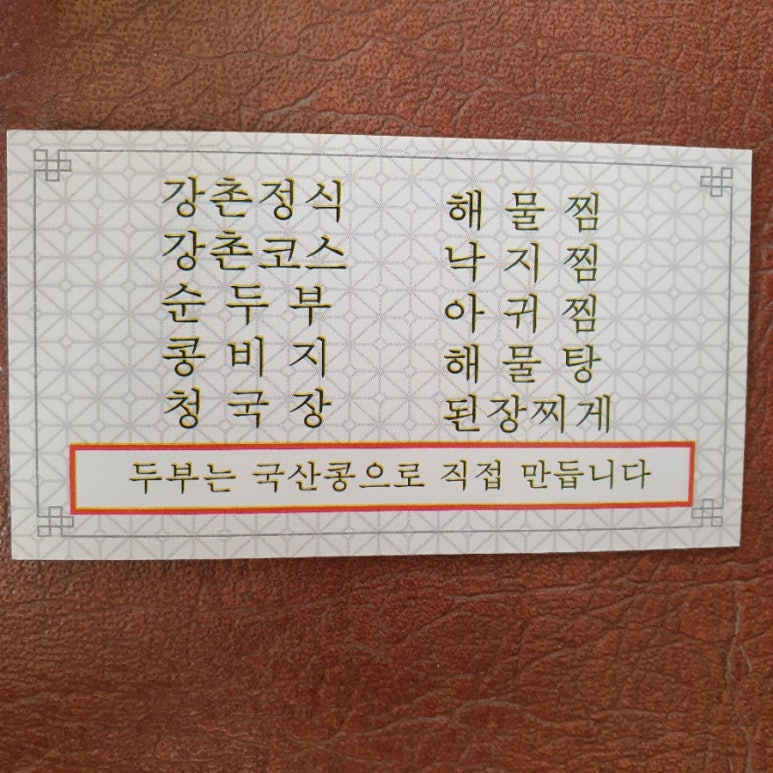 강촌정식
강촌코스
순두부
콩비지
청국장
해물찜
낙지찜
아귀찜
해물탕
된장찌게
두부는 국산콩으로 직접 만듭니다